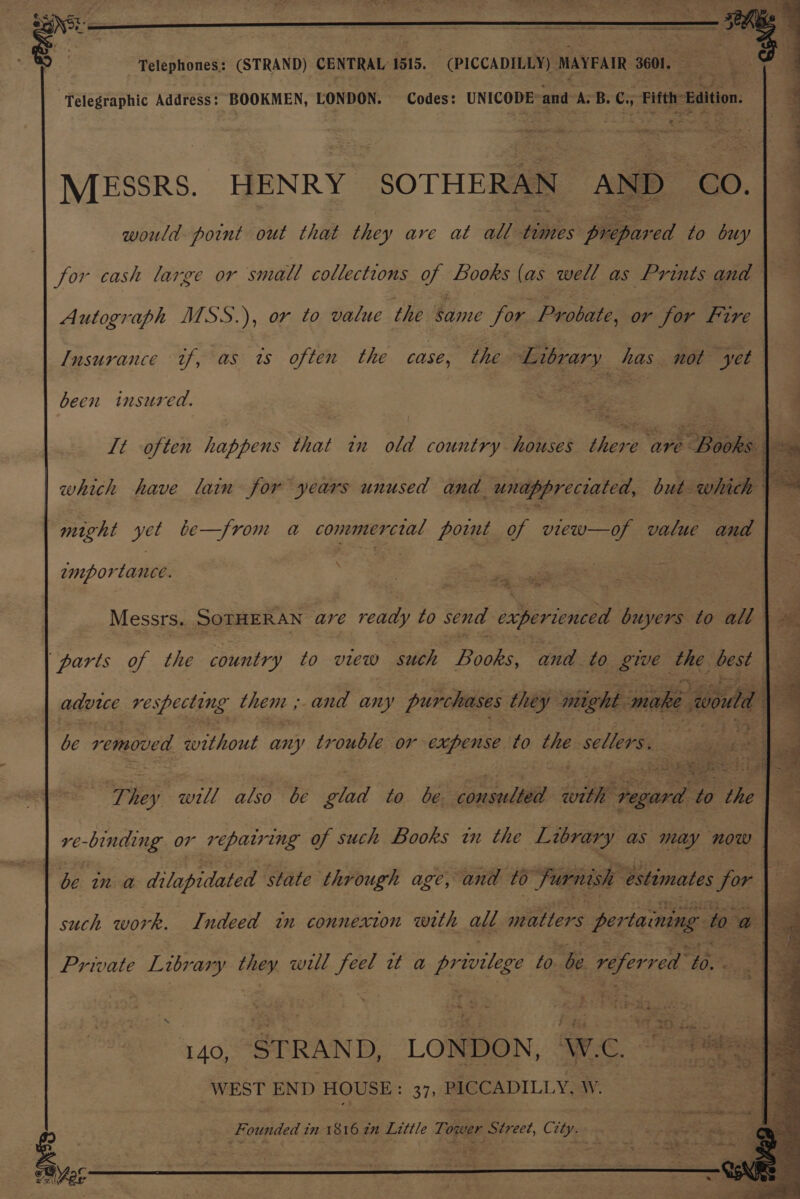 Telephones: (STRAND) CENTRAL 1515. (PICCADILLY) MAYFAIR 3601.
Telegraphic Address: BOOKMEN, LONDON. Codes: UNICODE and A. B. C., Fifth Edition.
MESSRS. HENRY SOTHERAN AND CO.
would point out that they are at all times prepared to buy
for cash large or small collections of Books (as well as Prints and
Autograph MSS.), or to value the same for Probate, or for Fire
Insurance if, as is often the case, the Library has not yet
been insured.
It often happens that in old country houses there are Books
which have lain for years unused and unappreciated, but which
might yet be—from a commercial point of view—of value and
importance.
Messrs. SOTHERAN are ready to send experienced buyers to all
parts of the country to view such Books, and to give the best
advice respecting them; and any purchases they might make would
be removed without any trouble or expense to the sellers.
They will also be glad to be consulted with regard to the
re-binding or repairing of such Books in the Library as may now
be in a dilapidated state through age, and to furnish estimates for
such work. Indeed in connexion with all matters pertaining to a
Private Library they will feel it a privilege to be referred to.
140, STRAND, LONDON, W.C.
WEST END HOUSE: 37, PICCADILLY, W.
Founded in 1816 in Little Tower Street, City.